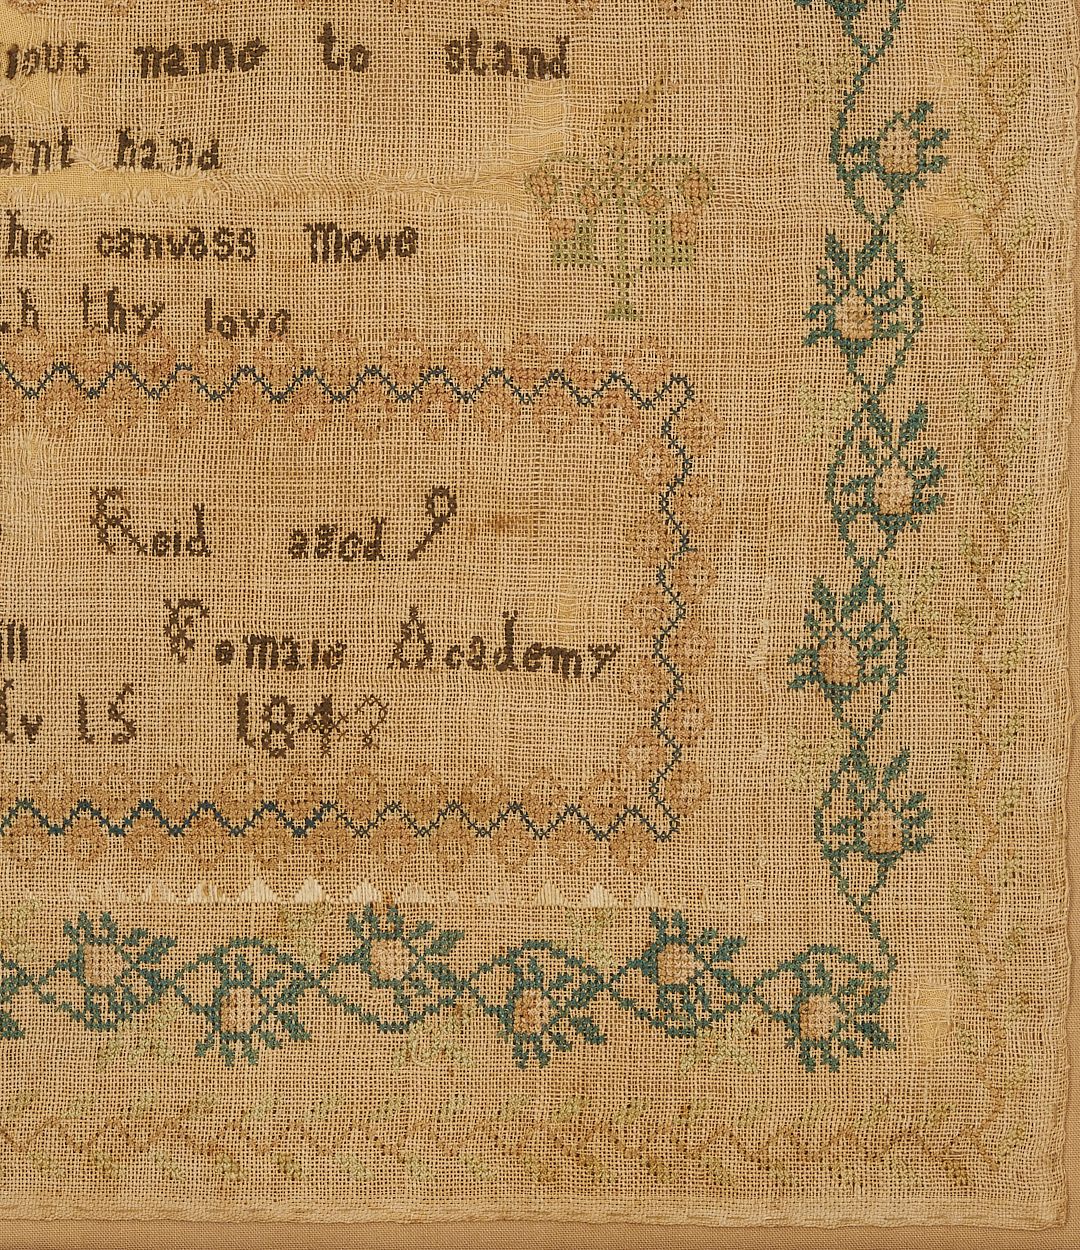 ious name to stand
ant hand
he canvass move
h thy love
Reid aged 9
ill Female Academy
ly 15 1842